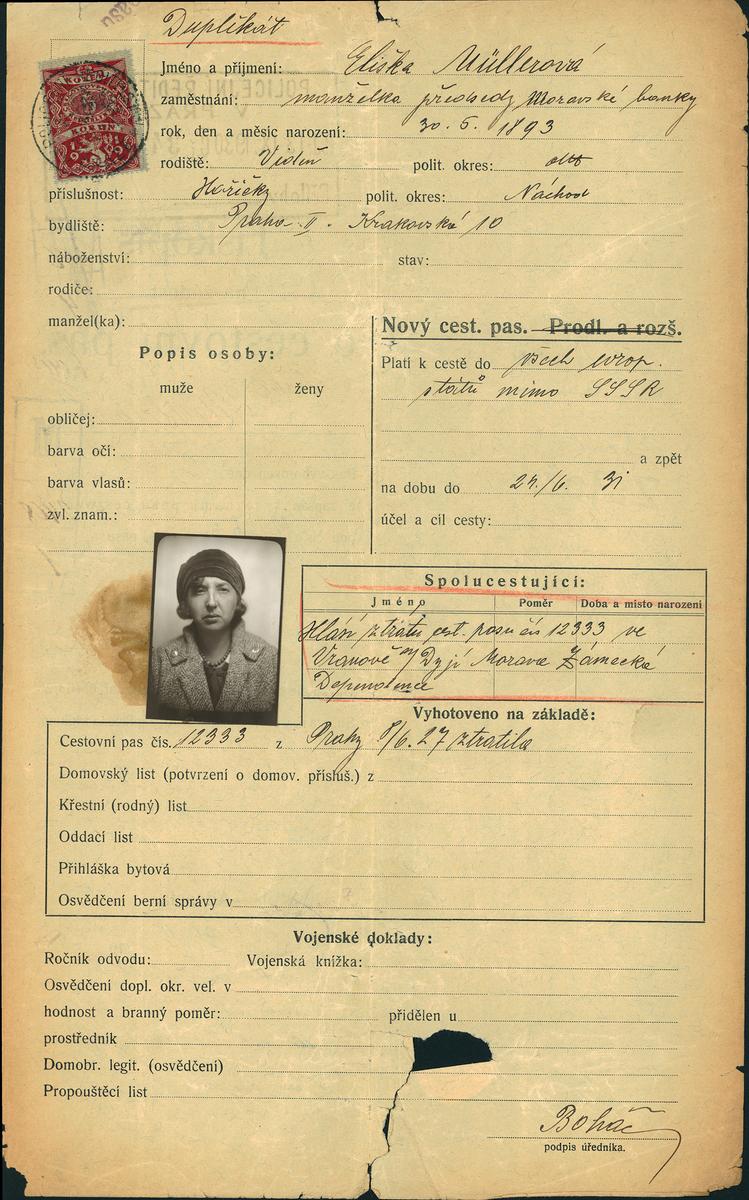 Duplikát
Jméno a příjmení: Eliška Müllerová
zaměstnání: manželka předsedy Moravské banky
rok, den a měsíc narození: 30. 5. 1893
rodiště: Vídeň polit. okres: dtto
příslušnost: Hořičky polit. okres: Náchod
bydliště: Praha II. - Krakovská 10
náboženství: stav:
rodiče:
manžel(ka):
Nový cest. pas. Prodl. a rozš.
Popis osoby:
muže ženy
obličej:
barva očí:
barva vlasů:
zvl. znam.:
Platí k cestě do všech evrop.
států mimo SSSR
a zpět
na dobu do 24./6. 31
účel a cíl cesty:
Spolucestující:
Jméno Poměr Doba a místo narození
Hlásí ztrátu cest. pasu čís 12333 ve
Vranově n/Dyjí Morava Zámecká
Dependence
Vyhotoveno na základě:
Cestovní pas čís. 12333 z Prahy 8/6. 27 ztratila
Domovský list (potvrzení o domov. přísluš.) z
Křestní (rodný) list
Oddací list
Přihláška bytová
Osvědčení berní správy v
Vojenské doklady:
Ročník odvodu: Vojenská knížka:
Osvědčení dopl. okr. vel. v
hodnost a branný poměr: přidělen u
prostředník
Domobr. legit. (osvědčení)
Propouštěcí list
Boháč
podpis úředníka.